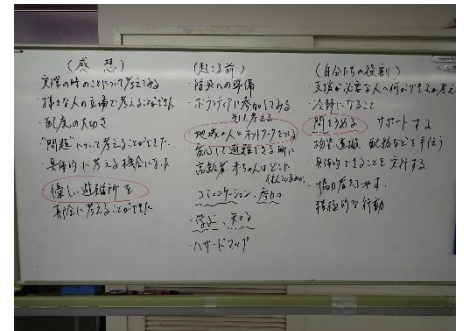 (感想)
実際の時のことについて考えてみる
様々な人の立場で考えることができた
・制度の大切さ
"問題"について考えることができた
・具体的に考える機会になった
優しい避難所を
真剣に考えることができた
(起こる前)
・防災への準備
・ボランティアに参加してみる
・地域の人とネットワークをつくる
・安心して避難できる
・高齢者、赤ちゃんはどこに
住んでいるのか
・コミュニケーション、
・学ぶ、知る
・ハザードマップ
(自分たちの役割)
支援が必要な人へ何ができるか考え
・冷静になること
間をうめる サポートする
物資運搬、配給などを手伝う
・具体的できることを実行する
・協力者をふやす
積極的な行動